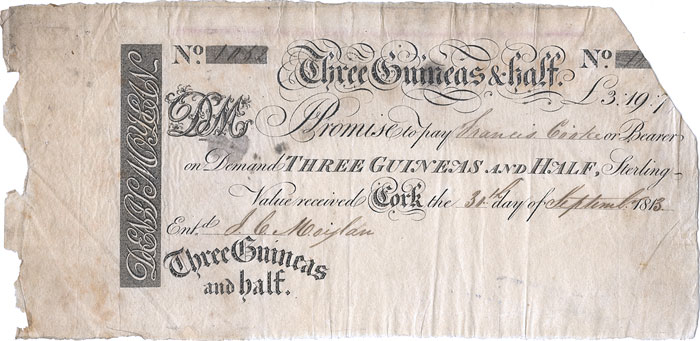 No. 1052 No.
Three Guineas & half.
£3:19:7
DM Promise to pay Francis Cooke or Bearer
on Demand THREE GUINEAS AND HALF, Sterling
Value received Cork the 30th day of Septembr. 1813
Entd. J. C. Moylan
Three Guineas
and half.
DENIS MOYLAN